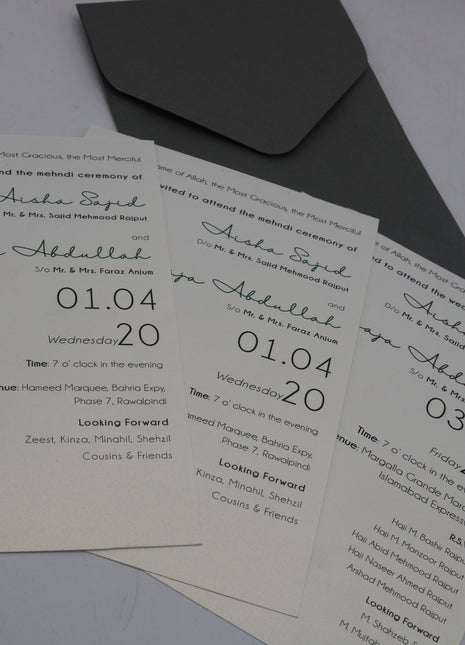 Most Gracious, the Most Merciful
and the mehndi ceremony of
Aisha Sajid
Mr. & Mrs. Sajid Mehmood Rajput
and
Abdullah
S/o Mr. & Mrs. Faraz Anjum
01.04
Wednesday 20
Time: 7 o' clock in the evening
nue: Hameed Marquee, Bahria Expy,
Phase 7, Rawalpindi
Looking Forward
Zeest, Kinza, Minahil, Shehzil
Cousins & Friends
ame of Allah, the Most Gracious, the Most Merciful
vited to attend the mehndi ceremony of
Aisha Sajid
D/o Mr. & Mrs. Sajid Mehmood Rajput
and
aja Abdullah
S/o Mr. & Mrs. Faraz Anjum
01.04
Wednesday 20
Time: 7 o' clock in the evening
ameed Marquee, Bahria Expy,
Phase 7, Rawalpindi
Looking Forward
Kinza, Minahil, Shehzil
Cousins & Friends
e of Allah, the Most Graciou
d to attend the we
Aish
D/o Mr. & Mrs. Sa
aja Abd
S/o Mr. &
03
Friday
Time: 7 o' clock in the e
enue: Margalla Grande Marq
Islamabad Express
R.S.
Haji M. Bashir Rajp
Haji M. Manzoor Rajput
Haji Abid Mehmood Rajput
Haji Naseer Ahmed Rajput
Arshad Mehmood Rajput
Looking Forward
M. Shahzeb, S
M. Mujtab